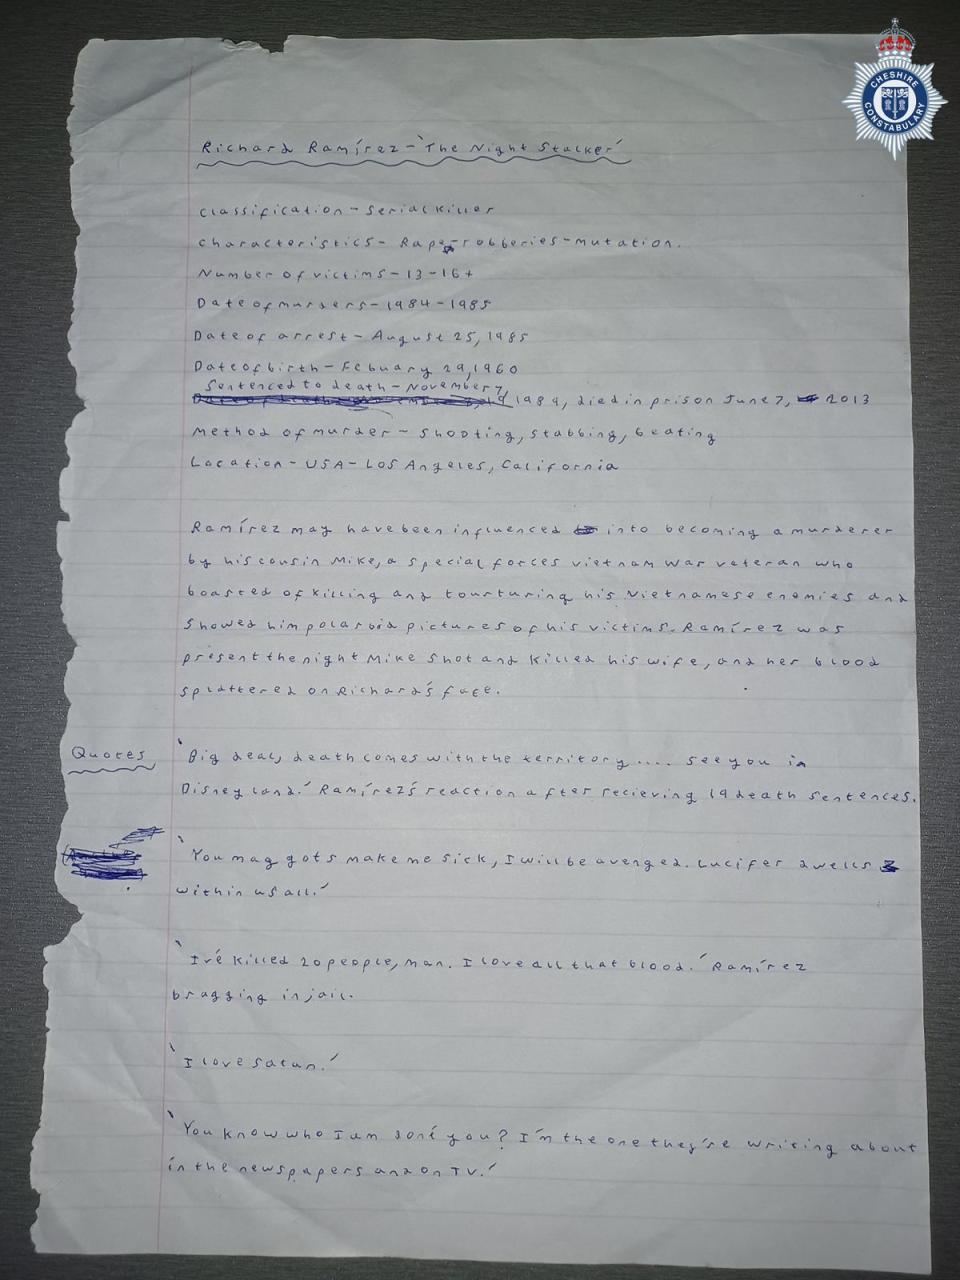 CHESHIRE CONSTABULARY
Richard Ramírez - 'The Night Stalker'
Classification - Serial Killer
Characteristics - Rape - robberies - mutation.
Number of victims - 13 - 16+
Date of murders - 1984 - 1985
Date of arrest - August 25, 1985
Date of birth - Febuary 29, 1960
Sentenced to death - November 7,
1989, died in prison June 7, 2013
Method of murder - Shooting, Stabbing, beating
Location - USA - Los Angeles, California
Ramírez may have been influenced into becoming a murderer
by his cousin Mike, a special forces vietnam war veteran who
boasted of killing and tourturing his Vietnamese enemies and
showed him polaroid pictures of his victims. Ramírez was
present the night Mike shot and killed his wife, and her blood
splattered on Richard's face.
Quotes 'Big deal, death comes with the territory.... see you in
Disneyland.' Ramírez's reaction after recieving 19 death sentences.
'You maggots make me sick, I will be avenged. Lucifer dwells
within us all.'
'I've killed 20 people, man. I love all that blood.' Ramírez
bragging in jail.
'I love Satan.'
'You know who I am don't you? I'm the one they're writing about
in the newspapers and on TV.'